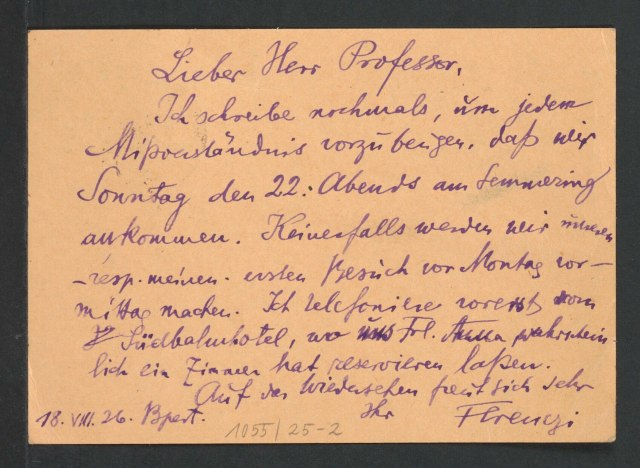 Lieber Herr Professor,
Ich schreibe nochmals, um jedem
Mißverständnis vorzubeugen, daß wir
Sonntag den 22. Abends am Semmering
ankommen. Keinesfalls werden wir unseren
– resp. meinen – ersten Besuch vor Montag vor-
mittag machen. Ich telefoniere vorerst vom
Südbahnhotel, wo uns Frl. Anna wahrschein
lich ein Zimmer hat reservieren laßen.
Auf das Wiedersehen freut sich sehr
Ihr Ferenczi
18. VIII. 26. Bpest.
1055/25-2